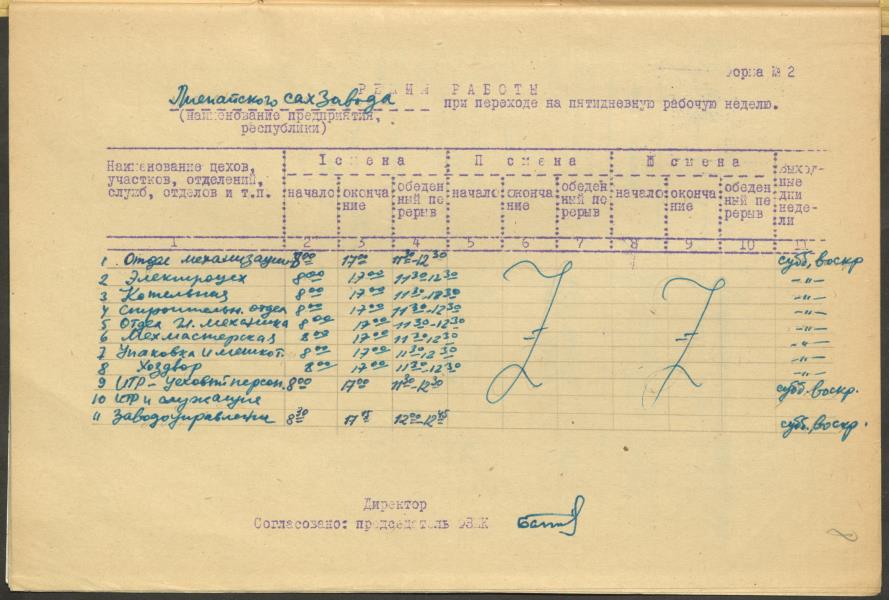 Форма № 2
РЕЖИМ РАБОТЫ
Лиепайского сахзавода при переходе на пятидневную рабочую неделю.
(наименование предприятия,
республики)
Наименование цехов, участков, отделений, служб, отделов и т.п. I смена П смена Ш смена Выходные дни недели
начало окончание обеденный перерыв начало окончание обеденный перерыв начало окончание обеденный перерыв
1 2 3 4 5 6 7 8 9 10 11
1 Отдел механизации 8 00 17 00 11 30-12 30 субб, воскр
2 Электроцех 8 00 17 00 11 30-12 30 -"-
3 Котельная 8 00 17 00 11 30-12 30 -"-
4 Строительн. отдел 8 00 17 00 11 30-12 30 -"-
5 Отдел гл. механика 8 00 17 00 11 30-12 30 -"-
6 Мехмастерская 8 00 17 00 11 30-12 30 -"-
7 Упаковка и мешкот. 8 00 17 00 11 30-12 30 -"-
8 Хоздвор 8 00 17 00 11 30-12 30 -"-
9 ИТР - цеховой персон. 8 00 17 00 11 30-12 30 субб. воскр.
10 ИТР и служащие
11 Заводоуправления 8 30 17 15 12 00-12 45 субб, воскр.
Директор
Согласовано: председатель ФЗМК